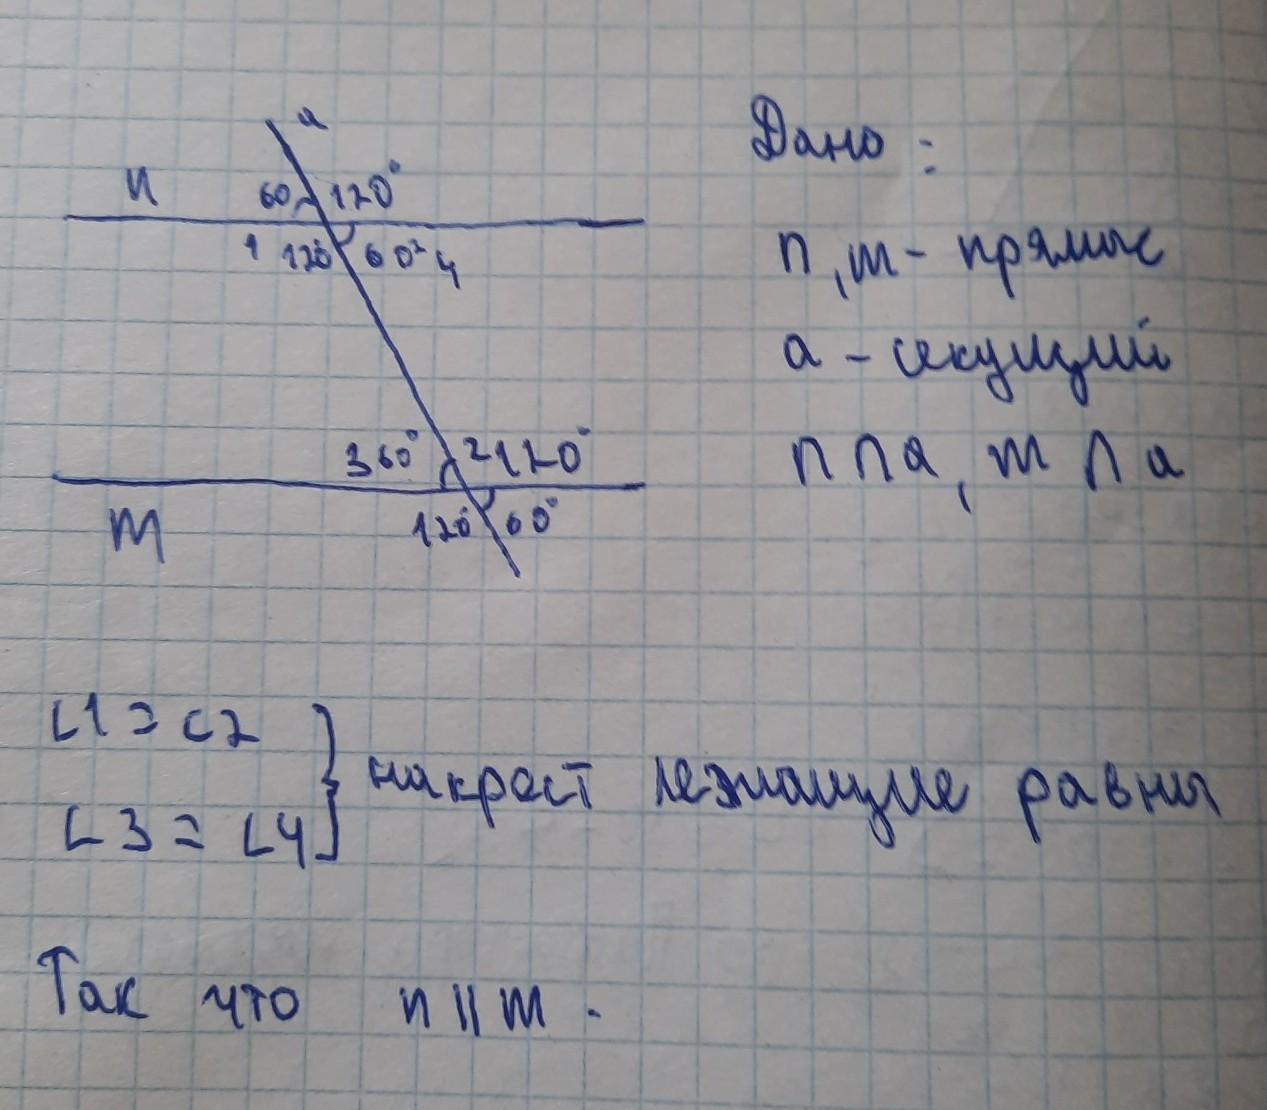 a
n 60 120°
1 120° 60° 4
3 60° 2 120°
m 120° 60°
Дано :
n, m - прямые
a - секущий
n ∩ a, m ∩ a
∟1 = ∟2
∟3 = ∟4
} накрест лежащие равны
Так что n || m .